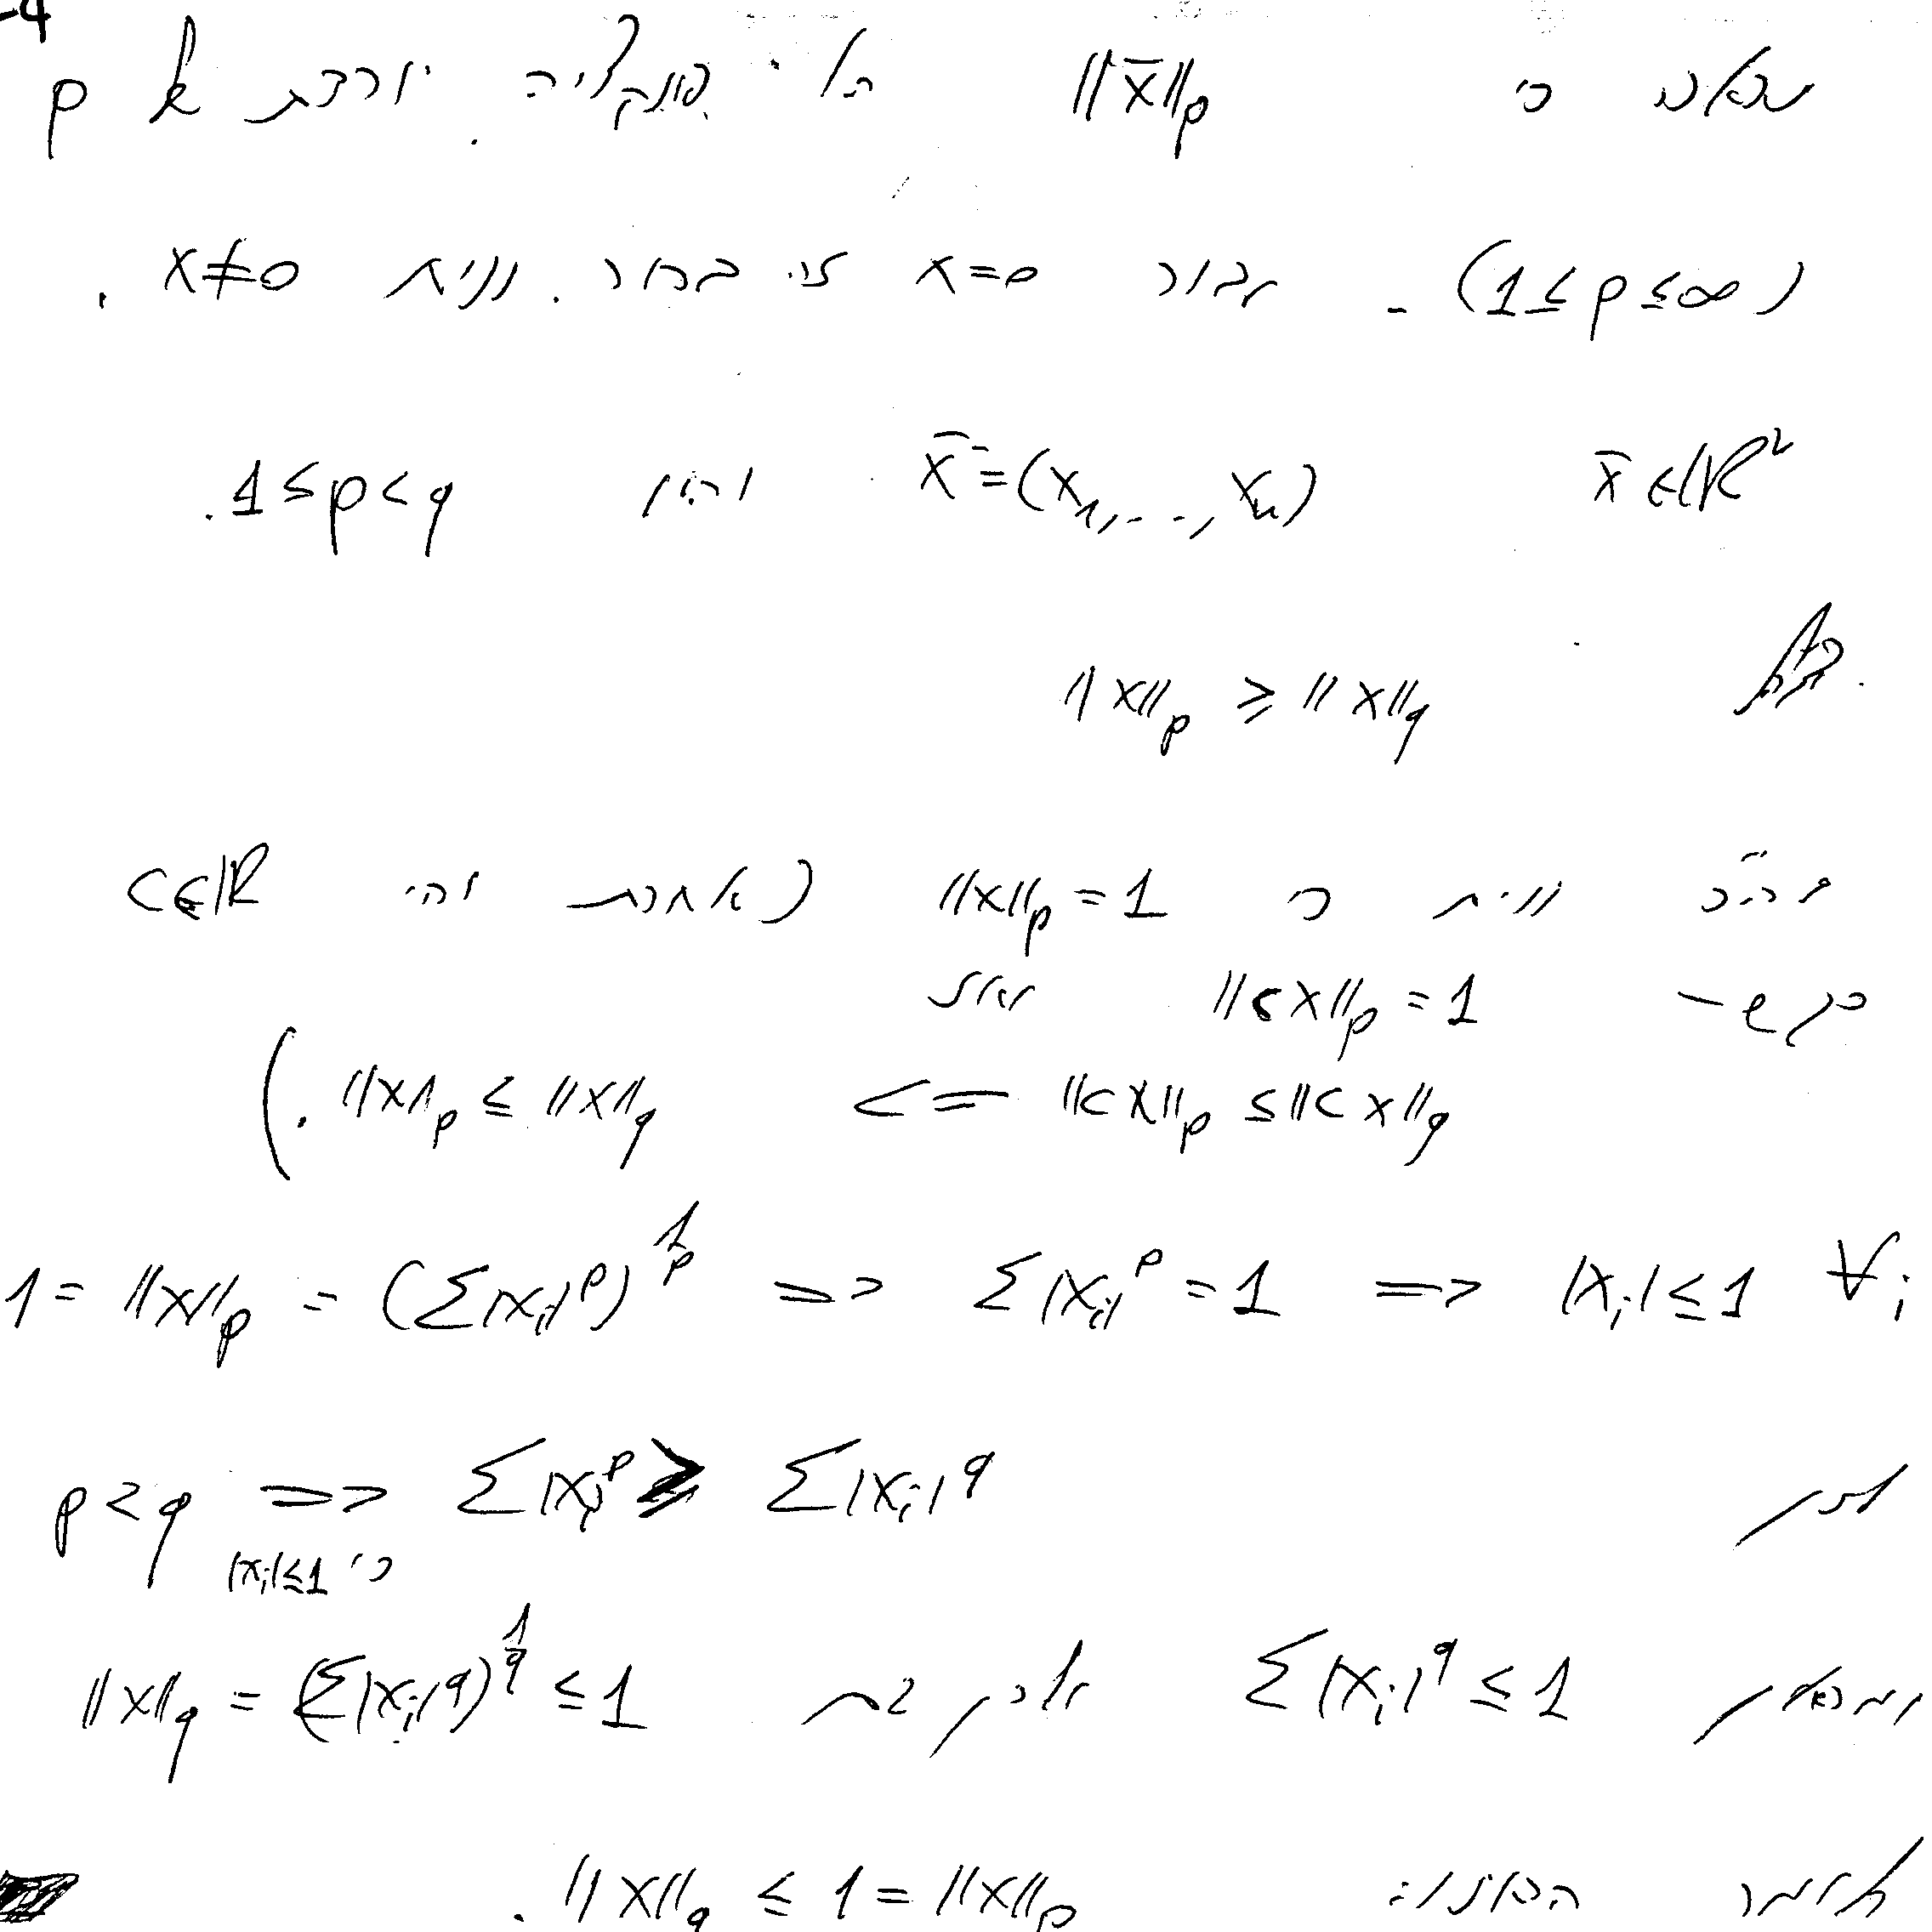 -4
כי $\|\bar{x}\|_p$ היא פונקציה יורדת של p
$(1 \leq p \leq \infty)$. עבור $x=0$ זה ברור. נניח $x \neq 0$.
$\bar{x} \in \mathbb{R}^n$ $\bar{x}=(x_1,...,x_n)$ ויהיו $1 \leq p < q$.
$\|x\|_p \geq \|x\|_q$
נניח כי $\|x\|_p = 1$ (אחרת יהי $c \in \mathbb{R}$
כך ש- $\|cx\|_p = 1$ ואז
$\|cx\|_p \leq \|cx\|_q$ <= $\|x\|_p \leq \|x\|_q$.)
$1 = \|x\|_p = (\sum |x_i|^p)^{\frac{1}{p}} => \sum |x_i|^p = 1 => |x_i| \leq 1 \ \forall i$
לכן $p < q => \sum |x_i|^p \geq \sum |x_i|^q$
כי $|x_i| \leq 1$
$\sum |x_i|^q \leq 1$ ולכן $\|x\|_q = (\sum |x_i|^q)^{\frac{1}{q}} \leq 1$
$\|x\|_q \leq 1 = \|x\|_p$.